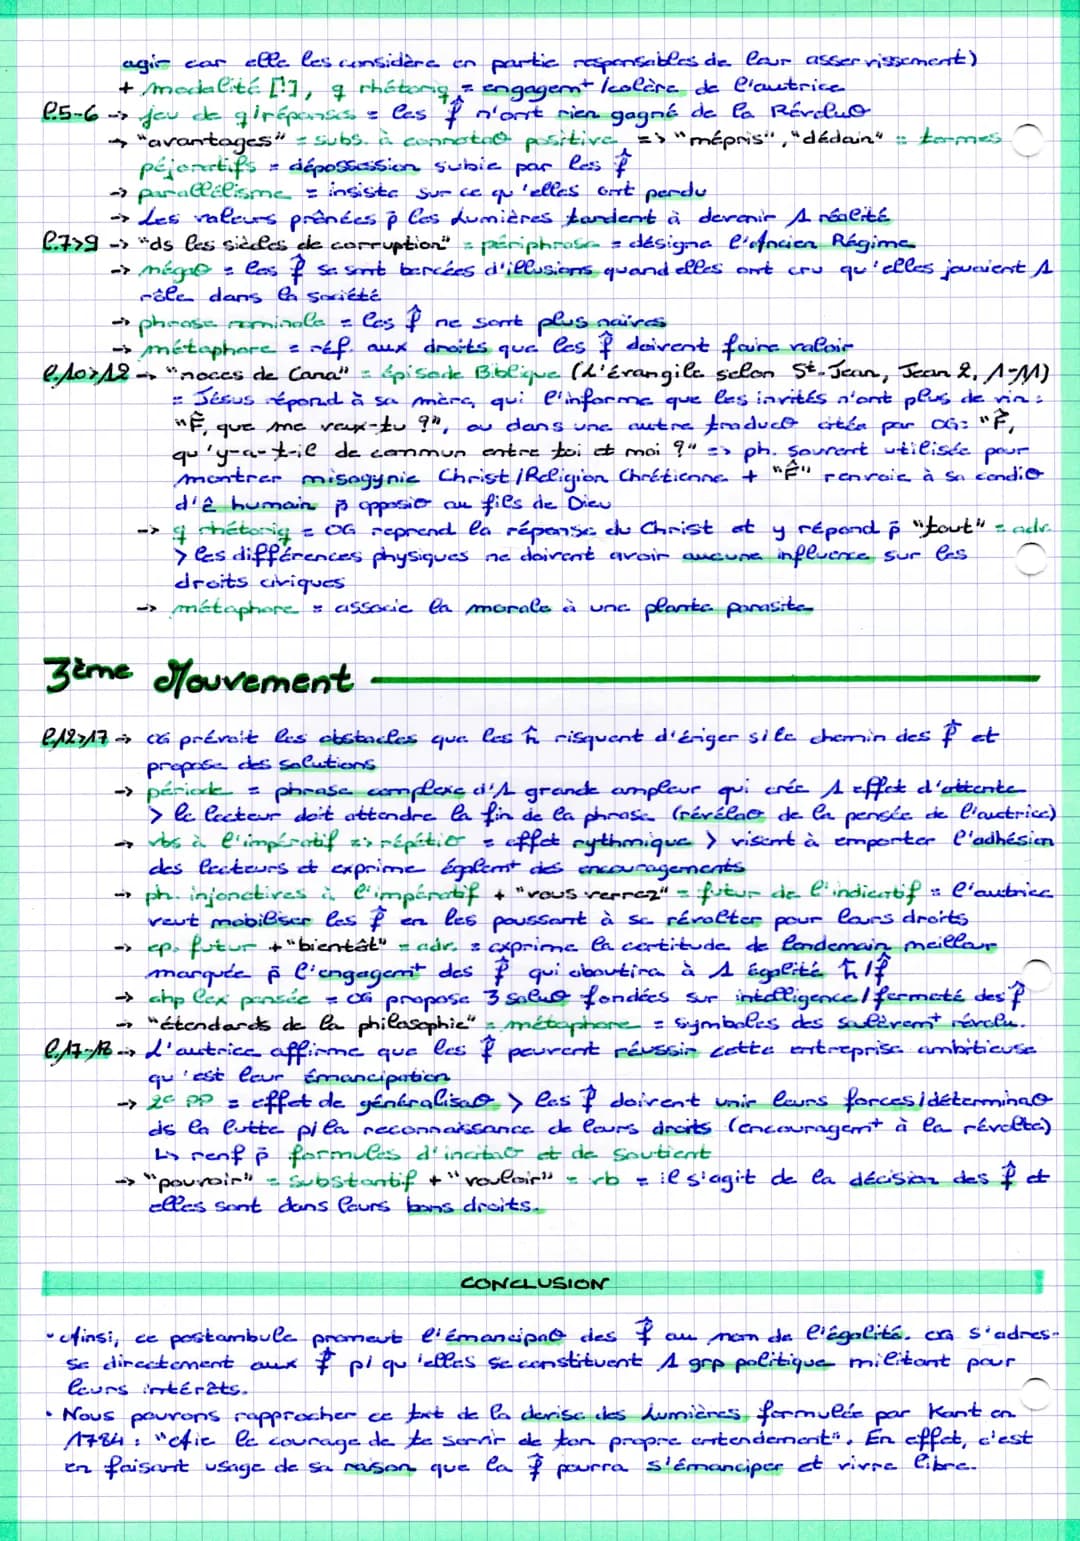 agir car elle les considère en partie responsables de leur asservissement)
+ modalité [!], q rhétoriq = engagem^t / colère de l'autrice
l.5-6 → jeu de q/réponses = les f̂ n'ont rien gagné de la Révoluo
→ "avantages" = subs. à connotao positive => "mépris", "dédain" = termes
péjoratifs = dépossession subie par les f̂
→ parallélisme = insiste sur ce qu'elles ont perdu
→ Les valeurs prônées p̄ les Lumières tardent à devenir 1 réalité
l.7>9 → "ds les siècles de corruption" = périphrase = désigne l'Ancien Régime
→ négao = les f̂ se sont bercées d'illusions quand elles ont cru qu'elles jouaient 1
rôle dans la société
→ phrase nominale = les f̂ ne sont plus naïves
→ métaphore = réf. aux droits que les f̂ doivent faire valoir
l.10>12 → "noces de Cana" = épisode Biblique (L'évangile selon St-Jean, Jean 2, 1-11)
= Jésus répond à sa mère, qui l'informe que les invités n'ont plus de vin :
"F̂, que me veux-tu ?", ou dans une autre traduco citée par OG: "F̂,
qu'y-a-t-il de commun entre toi et moi ?" => ph. souvent utilisée pour
montrer misogynie Christ/Religion Chrétienne + "F̂" renvoie à sa condio
d'ê humain p̄ opposio au fils de Dieu
→ q rhétoriq = OG reprend la réponse du Christ et y répond p̄ "tout" = adv.
> les différences physiques ne doivent avoir aucune influence sur les
droits civiques
→ métaphore = associe la morale à une plante parasite
3ème Mouvement
l.12>17 → OG prévoit les obstacles que les ĥ risquent d'ériger s/le chemin des f̂ et
propose des solutions
→ période = phrase complexe d'1 grande ampleur qui crée 1 effet d'attente
> le lecteur doit attendre la fin de la phrase (révélao de la pensée de l'autrice)
→ vbs à l'impératif => répétio = effet rythmique > visent à emporter l'adhésion
des lecteurs et exprime égalem^t des encouragements
→ ph. injonctives à l'impératif + "vous verrez" = futur de l'indicatif = l'autrice
veut mobiliser les f̂ en les poussant à se révolter pour leurs droits
→ cp. futur + "bientôt" = adv. = exprime la certitude de lendemain meilleur
marquée p̄ l'engagem^t des f̂ qui aboutira à 1 égalité ĥ/f̂
→ chp lex pensée = OG propose 3 soluo fondées sur intelligence/fermeté des f̂
→ "étendards de la philosophie" = métaphore = symboles des soulèvem^t révolu.
l.17-18 → L'autrice affirme que les f̂ peuvent réussir cette entreprise ambitieuse
qu'est leur émancipation
→ 2e PP = effet de généralisao > les f̂ doivent unir leurs forces/déterminao
ds la lutte p/ la reconnaissance de leurs droits (encouragem^t à la révolte)
↳ renf p̄ formules d'incitao et de soutient
→ "pouvoir" = substantif + "vouloir" = vb = il s'agit de la décision des f̂ et
elles sont dans leurs bons droits.
CONCLUSION
• Ainsi, ce postambule promeut l'émancipao des f̂ au nom de l'égalité. OG s'adres-
se directement aux f̂ p/ qu'elles se constituent 1 grp politique militant pour
leurs intérêts.
• Nous pouvons rapprocher ce txt de la devise des Lumières formulée par Kant en
1784 : "Aie le courage de te servir de ton propre entendement". En effet, c'est
en faisant usage de sa raison que la f̂ pourra s'émanciper et vivre libre.